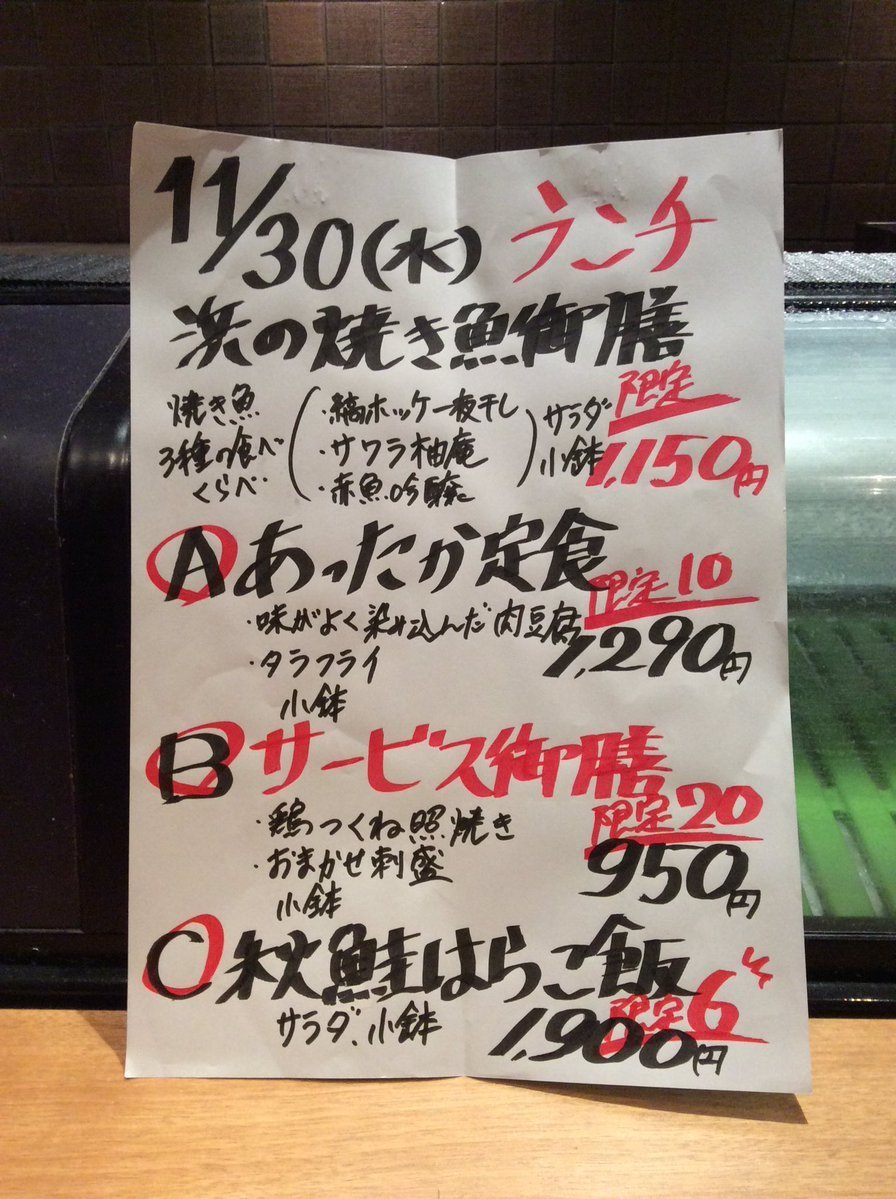 11/30(水) ランチ
浜の焼き魚御膳
限定
焼き魚
3種の食べ
くらべ
・縞ホッケ一夜干し
・サワラ柚庵
・赤魚吟醸
サラダ
小鉢
1,150円
A あったか定食
限定10
・味がよく染み込んだ肉豆腐
1,290円
・タラフライ
小鉢
B サービス御膳
限定20
・鶏つくね照焼き
・おまかせ刺盛
950円
小鉢
C 秋鮭はらこ飯
限定6
サラダ、小鉢
1,900円